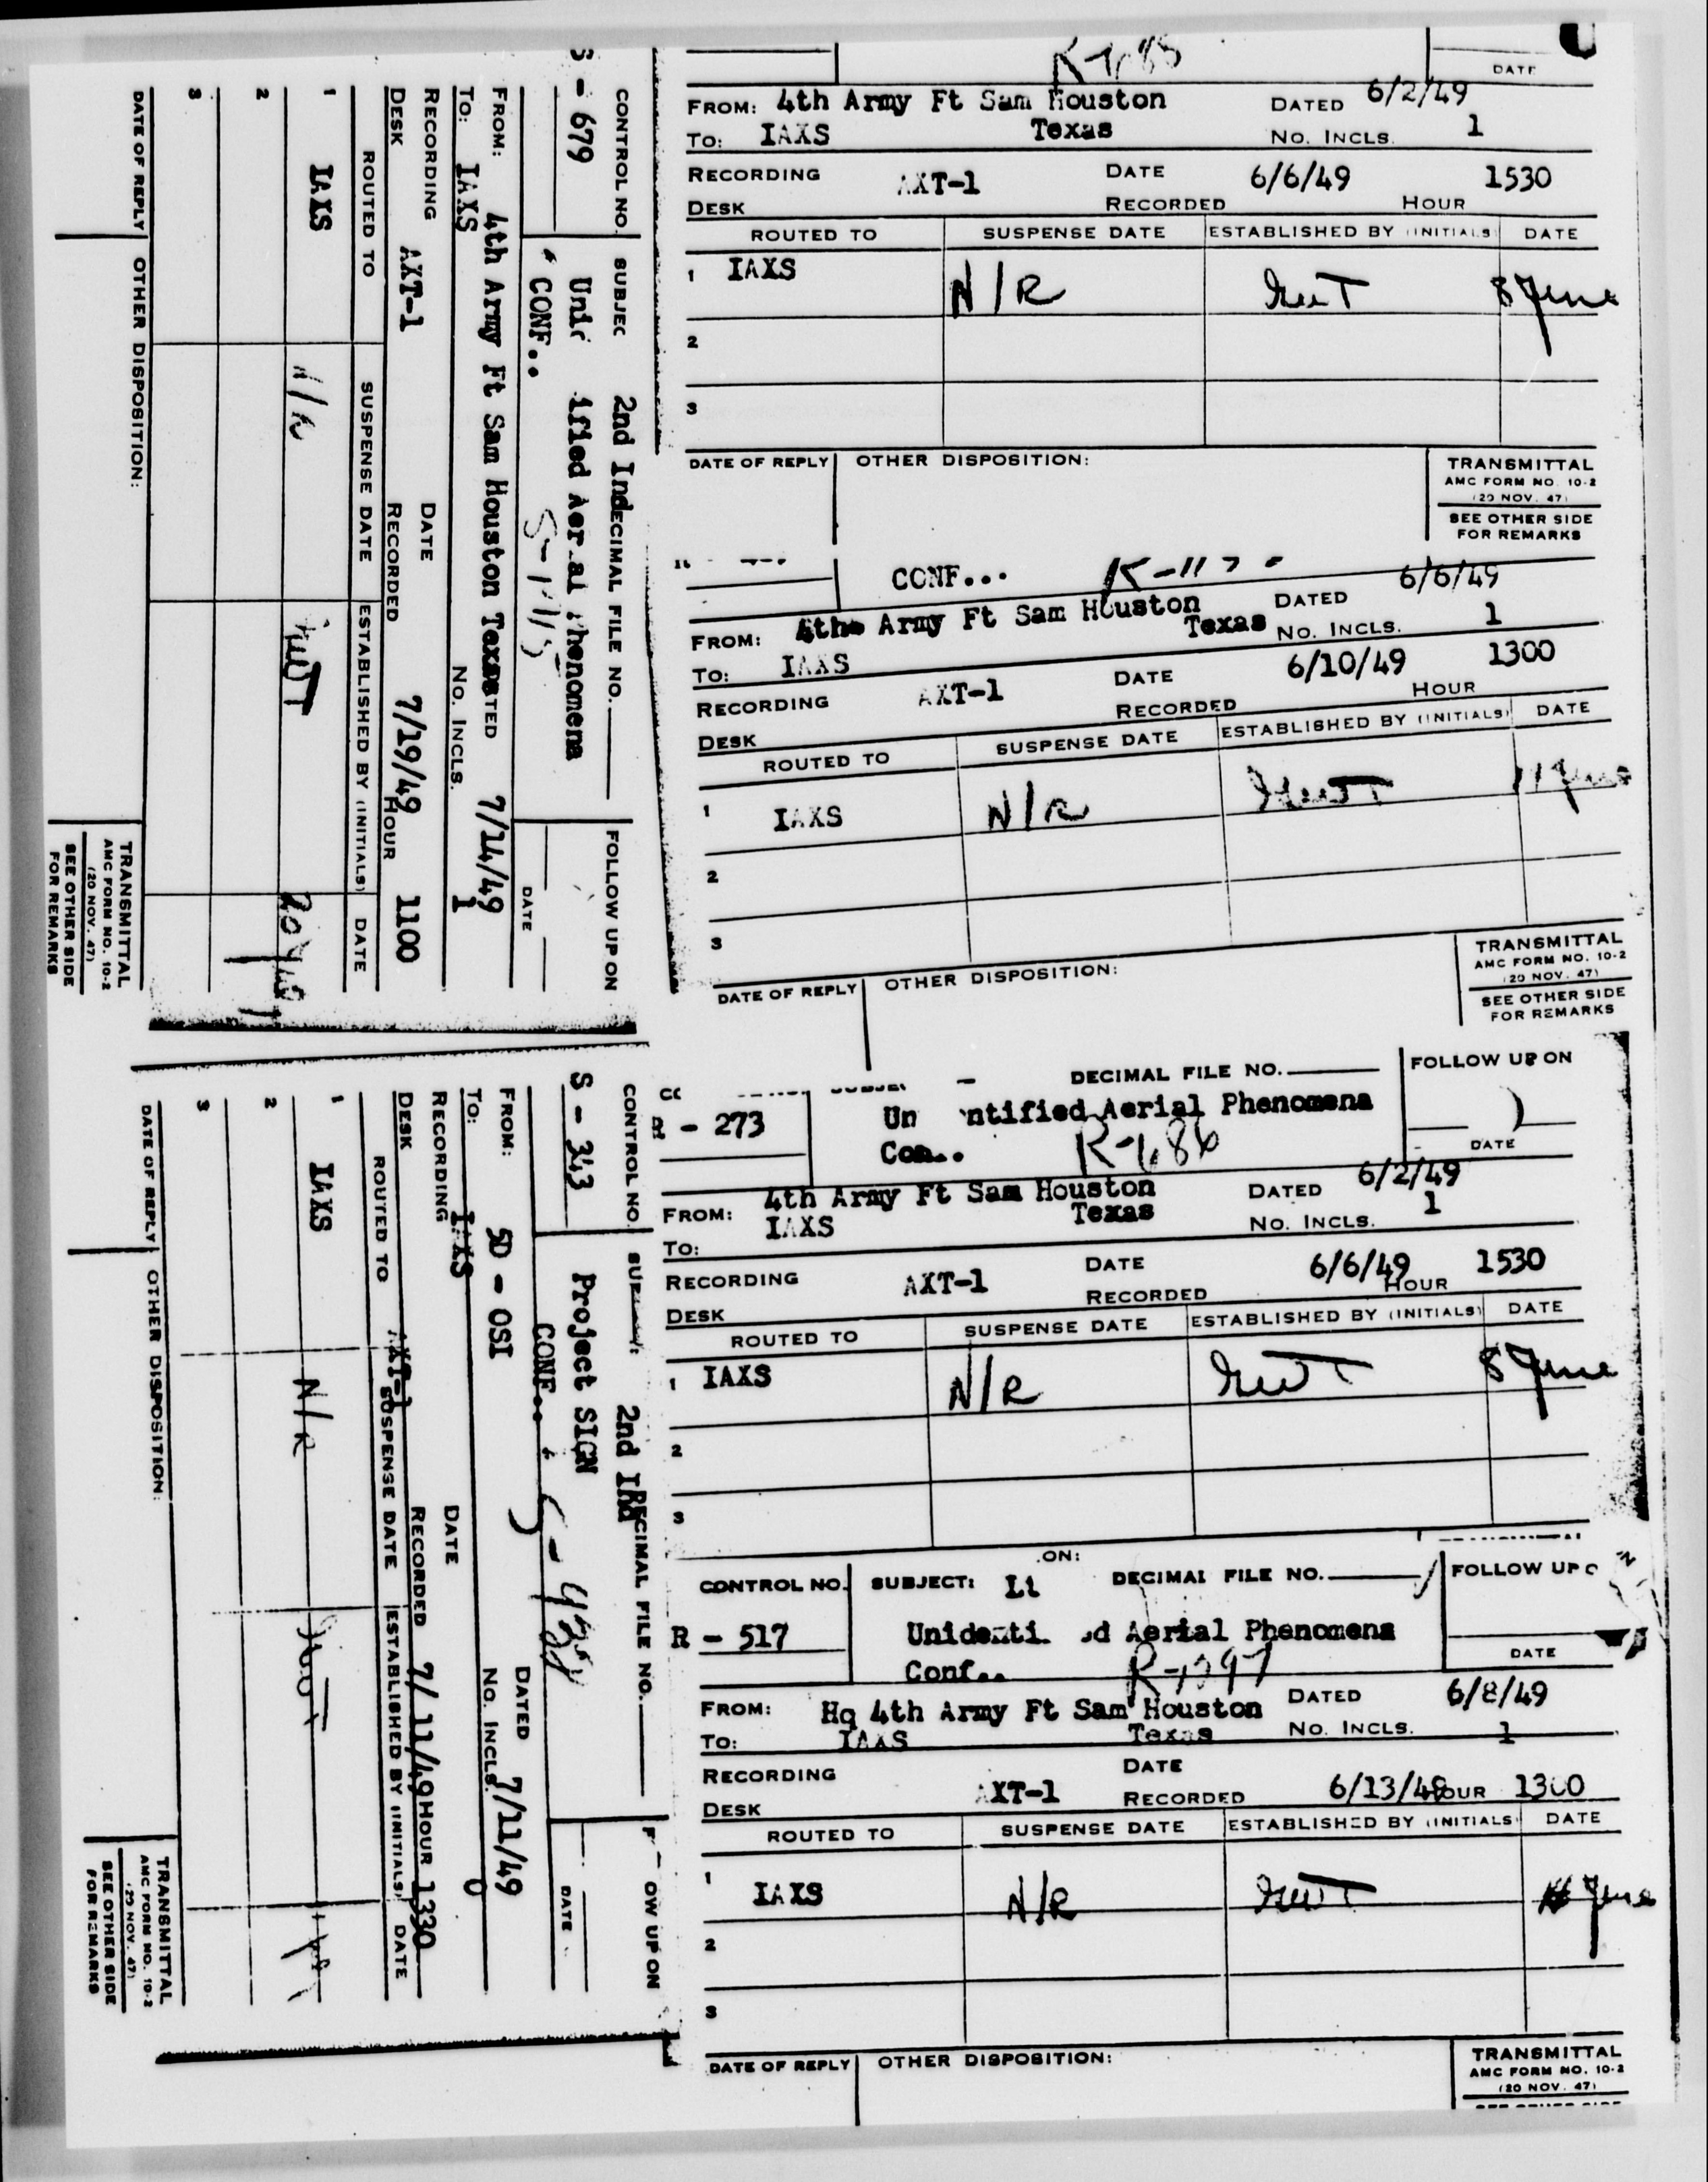 DATE
FROM: 4th Army Ft Sam Houston DATED 6/2/49
To: IAXS Texas No. INCLS. 1
RECORDING AXT-1 DATE 6/6/49 1530
DESK RECORDED HOUR
ROUTED TO SUSPENSE DATE ESTABLISHED BY (INITIALS) DATE
1 IAXS N/R 8 June
2
3
DATE OF REPLY OTHER DISPOSITION: TRANSMITTAL
AMC FORM NO. 10-2
(20 NOV. 47)
SEE OTHER SIDE
FOR REMARKS
CONF...
6/6/49
FROM: 4the Army Ft Sam Houston DATED
Texas No. INCLS. 1
To: IAXS
RECORDING AXT-1 DATE 6/10/49 1300
DESK RECORDED HOUR
ROUTED TO SUSPENSE DATE ESTABLISHED BY (INITIALS) DATE
1 IAXS N/R 11 June
2
3
DATE OF REPLY OTHER DISPOSITION: TRANSMITTAL
AMC FORM NO. 10-2
(20 NOV. 47)
SEE OTHER SIDE
FOR REMARKS
DECIMAL FILE NO. FOLLOW UP ON
- 273 Un ntified Aerial Phenomena
Con.. R-1686 DATE
FROM: 4th Army Ft Sam Houston DATED 6/2/49
Texas No. INCLS. 1
To: IAXS
RECORDING AXT-1 DATE 6/6/49 1530
DESK RECORDED HOUR
ROUTED TO SUSPENSE DATE ESTABLISHED BY (INITIALS) DATE
1 IAXS N/R 8 June
2
3
ON:
CONTROL NO. SUBJECT: DECIMAL FILE NO. FOLLOW UP O
R - 517 Unidenti d Aerial Phenomena
Conf.. DATE
FROM: Hq 4th Army Ft Sam Houston DATED 6/8/49
To: IAXS Texas No. INCLS. 1
RECORDING AXT-1 DATE
DESK RECORDED 6/13/49 HOUR 1300
ROUTED TO SUSPENSE DATE ESTABLISHED BY (INITIALS) DATE
1 IAXS N/R June
2
3
DATE OF REPLY OTHER DISPOSITION: TRANSMITTAL
AMC FORM NO. 10-2
(20 NOV. 47)
CONTROL NO. SUBJEC 2nd Ind DECIMAL FILE NO. FOLLOW UP ON
S - 679 Uni ified Aerial Phenomena
CONF.. DATE
FROM: 4th Army Ft Sam Houston Texas DATED 7/14/49
To: IAXS No. INCLS. 1
RECORDING DATE
DESK AXT-1 RECORDED 7/19/49 HOUR 1100
ROUTED TO SUSPENSE DATE ESTABLISHED BY (INITIALS) DATE
1 IAXS N/R
2
3
DATE OF REPLY OTHER DISPOSITION: TRANSMITTAL
AMC FORM NO. 10-2
(20 NOV. 47)
SEE OTHER SIDE
FOR REMARKS
CONTROL NO. 2nd Ind DECIMAL FILE NO. F OW UP ON
S - 343 Project SIGN
CONF.. DATE
FROM: 5D - OSI DATED 7/11/49
To: IAXS No. INCLS. 0
RECORDING DATE
DESK AXT-1 RECORDED 7/11/49 HOUR 1330
ROUTED TO SUSPENSE DATE ESTABLISHED BY (INITIALS) DATE
1 IAXS N/R
2
3
DATE OF REPLY OTHER DISPOSITION: TRANSMITTAL
AMC FORM NO. 10-2
(20 NOV. 47)
SEE OTHER SIDE
FOR REMARKS